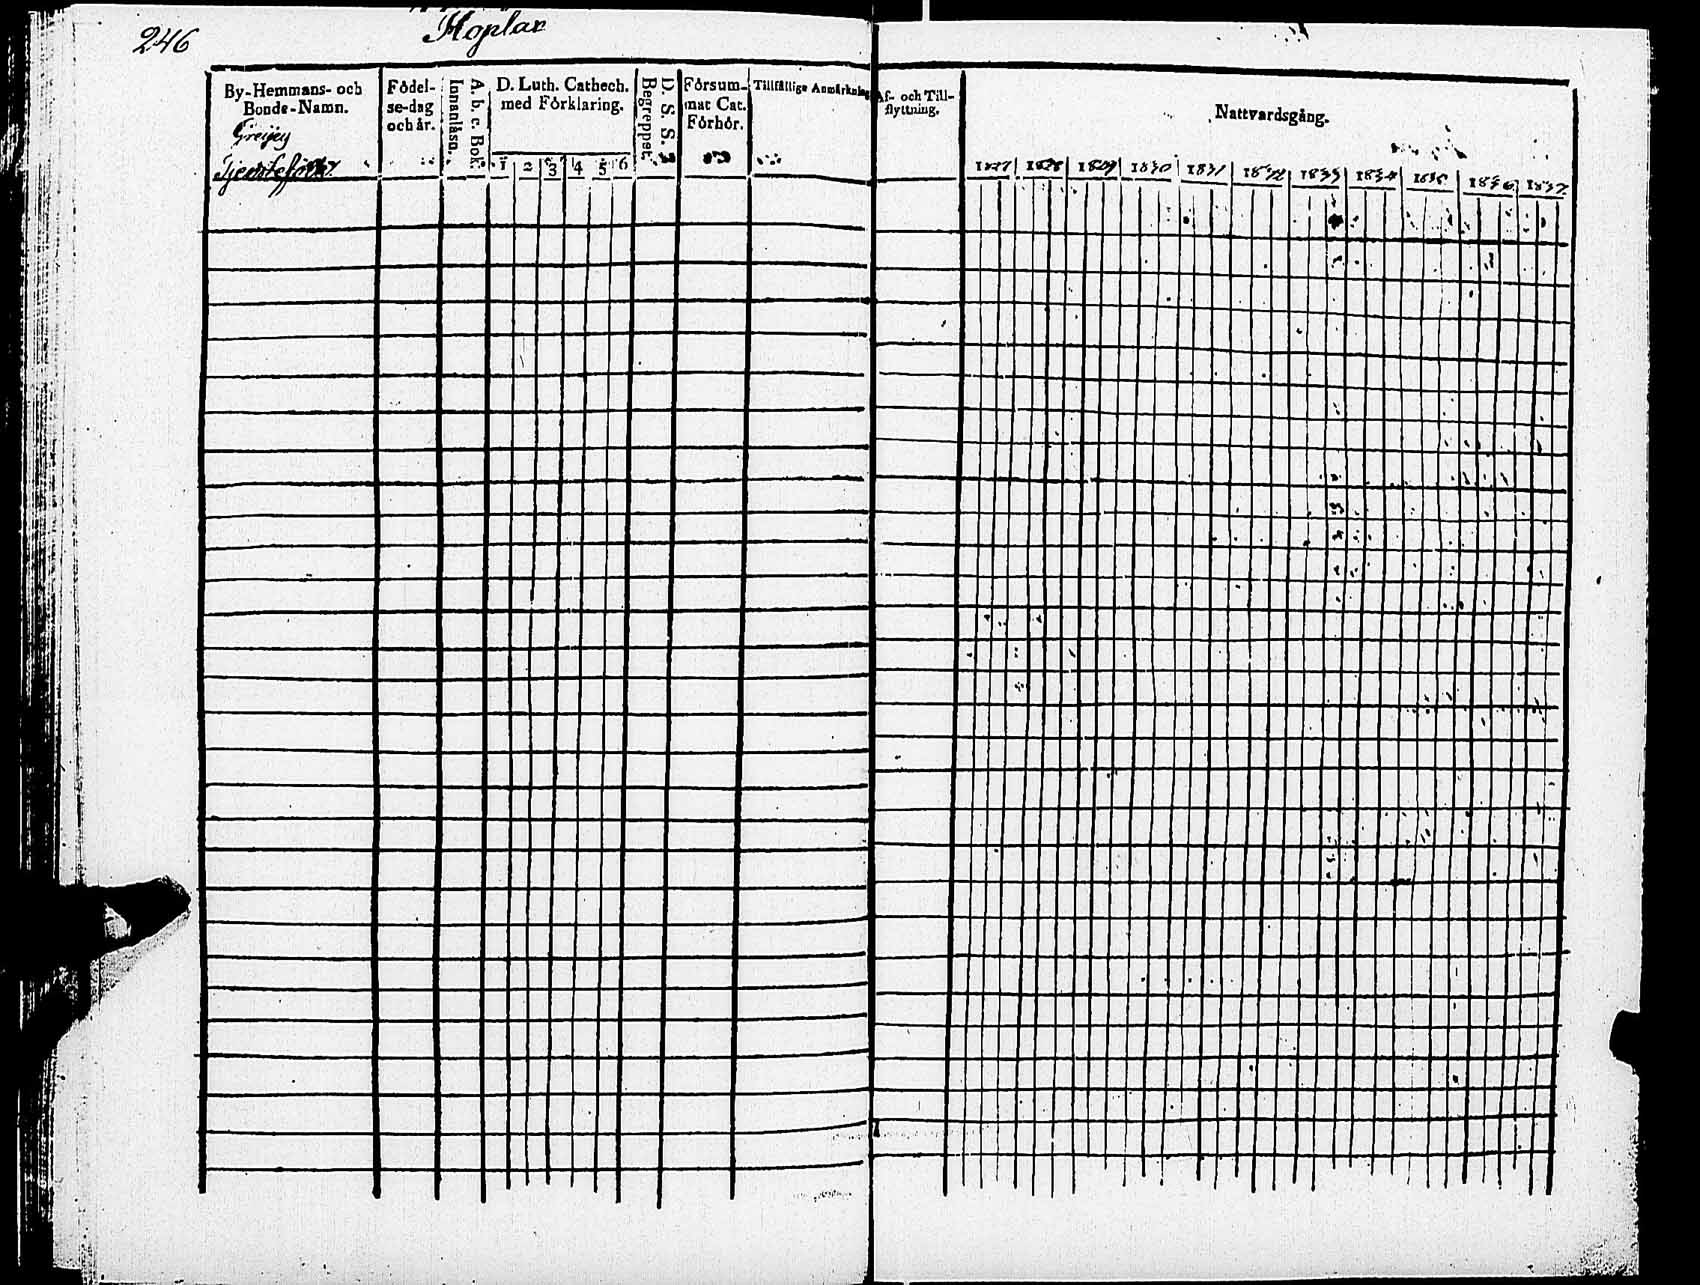 246
Hoplax
By-Hemmans- och
Bonde-Namn.
Greijey
Tjenstefolk
Födel-
se-dag
och år.
Innanläsn.
A. b. c. Bok.
D. Luth. Cathech.
med Förklaring.
1 2 3 4 5 6
Begreppet.
D. S. S.
Försum-
mat Cat.
Förhör.
Tillfällige Anmärkning
Af- och Till-
flyttning.
Nattvardsgång.
1827 1828 1829 1830 1831 1832 1833 1834 1835 1836 1837